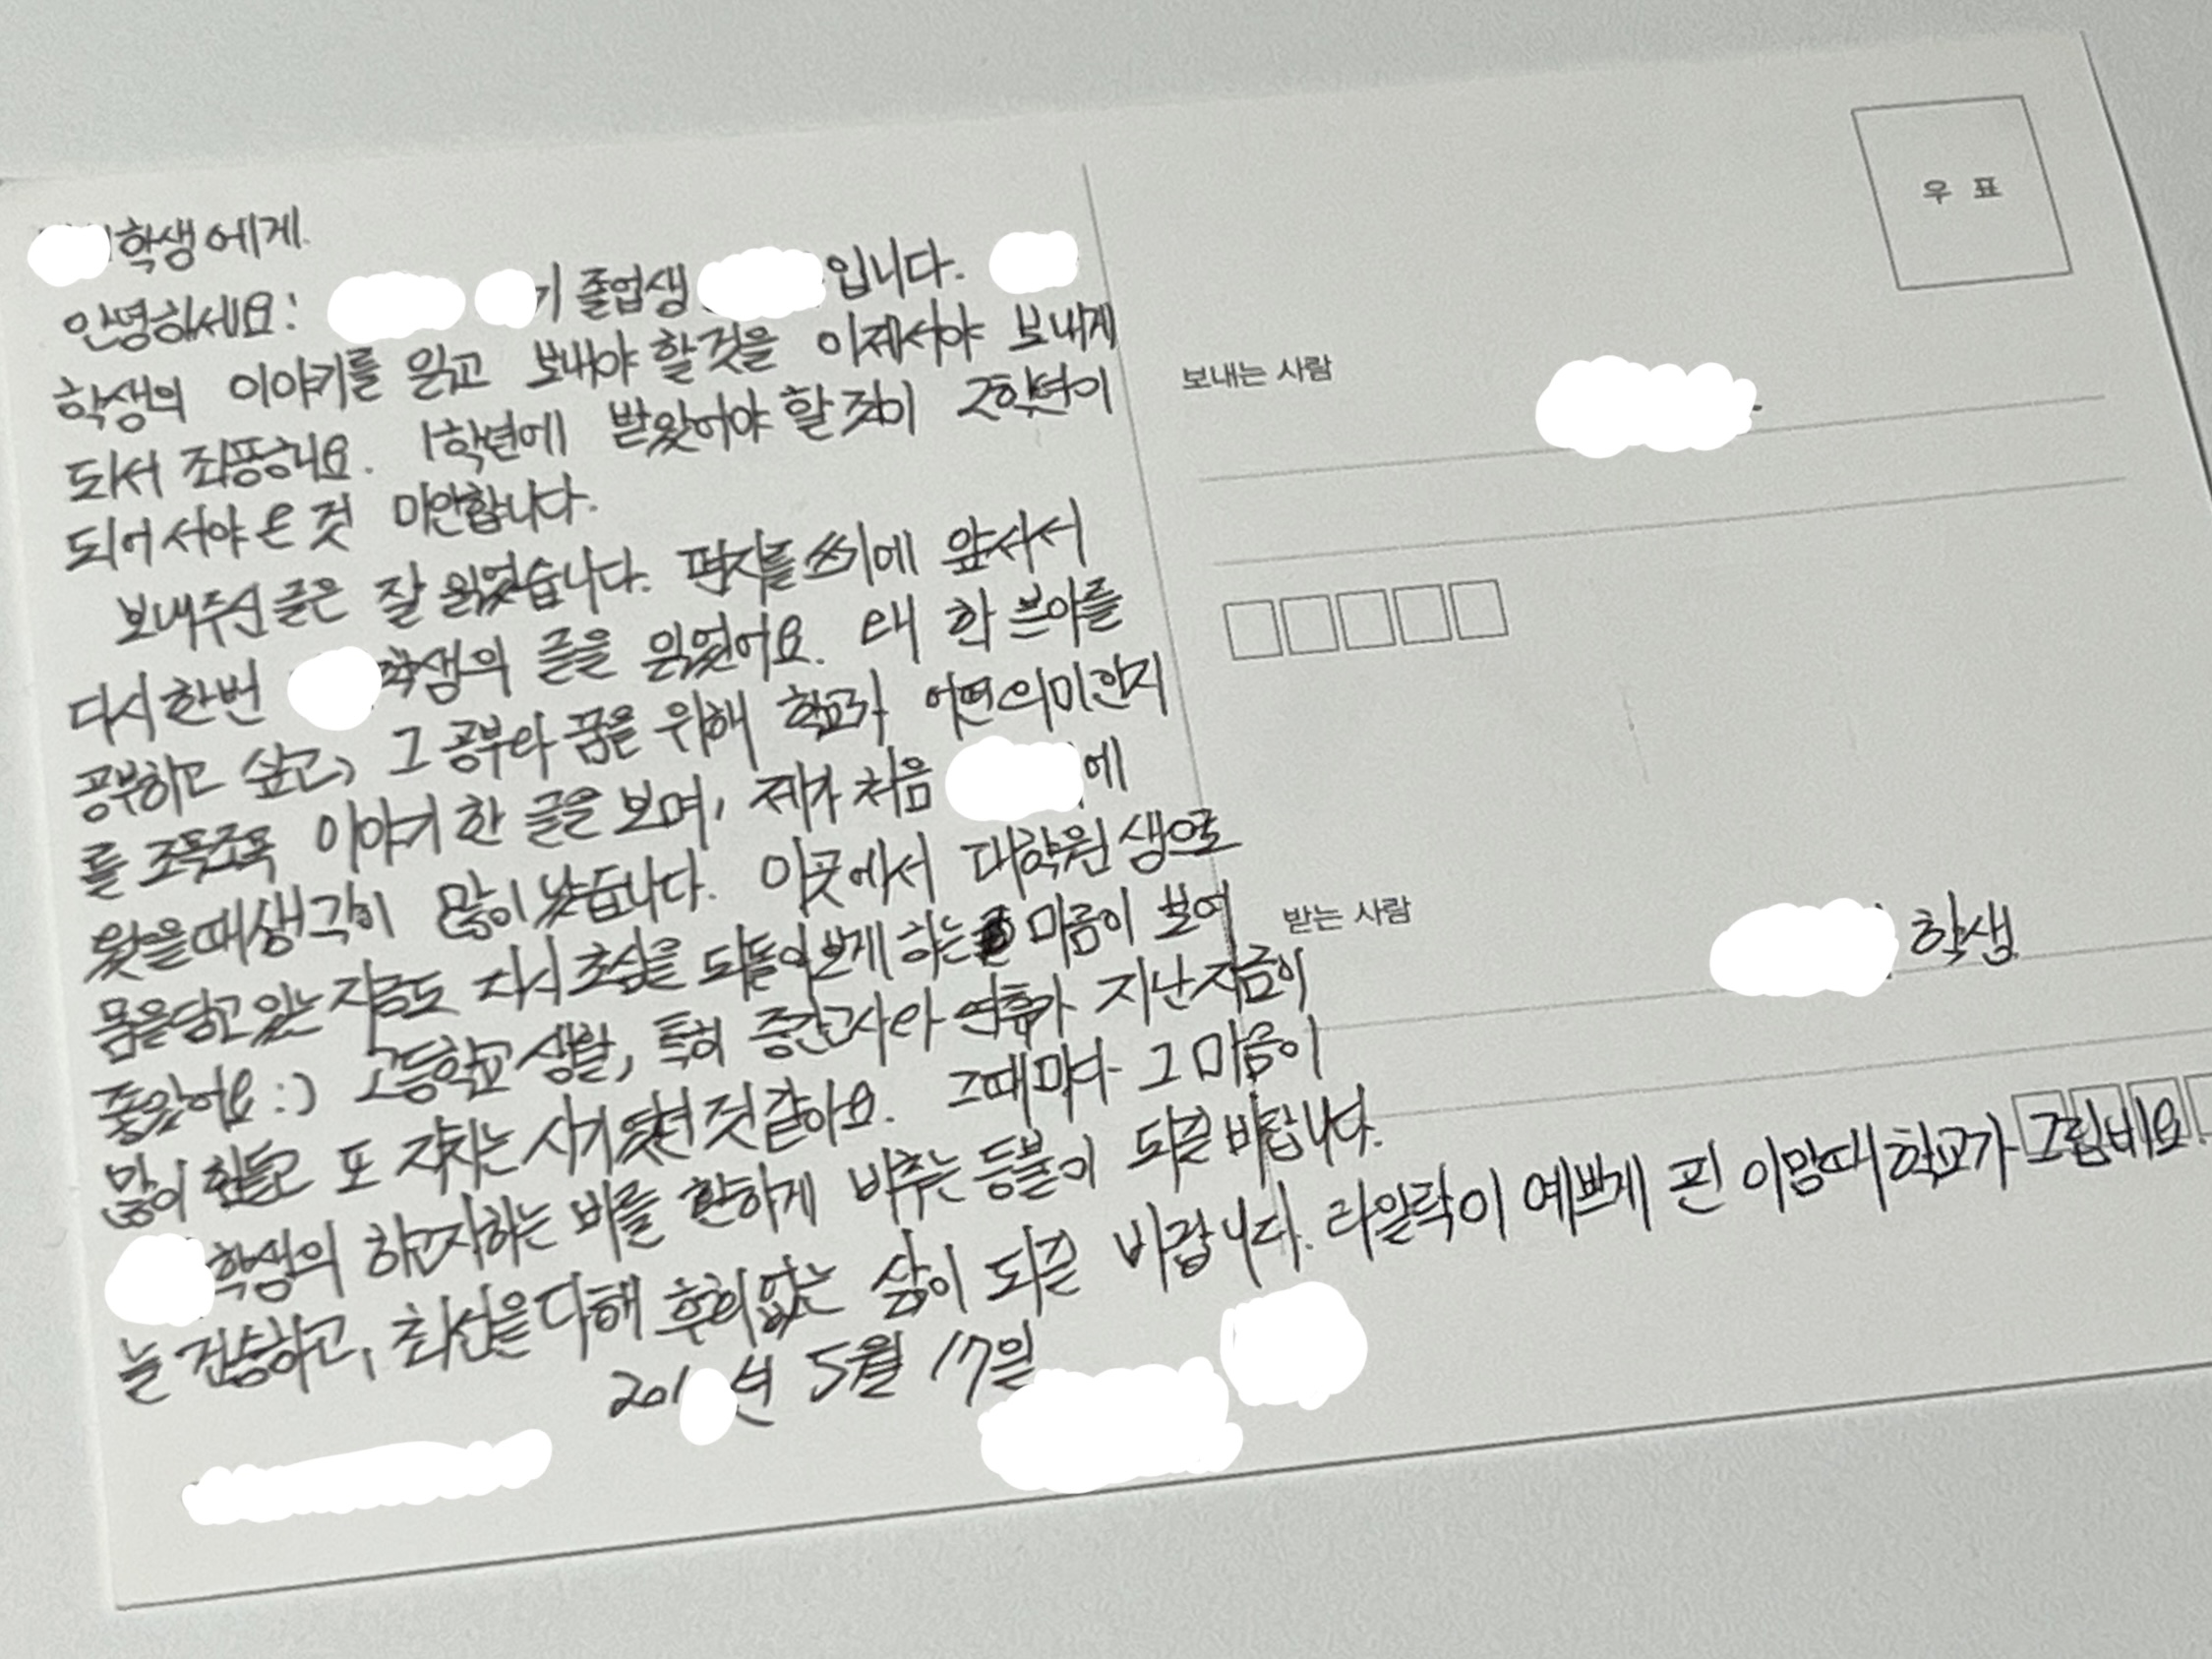 학생에게.
안녕하세요! 기 졸업생 입니다.
학생의 이야기를 읽고 보내야 할것을 이제서야 보내게
되서 죄송해요. 1학년에 받았어야 할 것이 2학년이
되어서야 온 것 미안합니다.
보내주신 글은 잘 읽었습니다. 편지를 쓰기에 앞서서
다시한번 학생의 글을 읽었어요. 왜 한 분야를
공부하고 싶고, 그 공부와 꿈을 위해 학교가 어떤 의미인지
를 조목조목 이야기 한 글을 보며, 제가 처음 에
왔을때 생각이 많이 났습니다. 이곳에서 대학원생으로
몸을 담고 있는 지금도 다시 초심을 되돌아보게 하는 마음이 보여
좋았어요 :) 고등학교 생활, 특히 중간고사와 연휴가 지난 지금이
많이 힘들고 또 지치는 시기였던 것 같아요. 그때마다 그 마음이
학생의 하고자하는 바를 환하게 비추는 등불이 되길 바랍니다.
늘 건승하고, 최선을 다해 후회없는 삶이 되길 바랍니다. 라일락이 예쁘게 핀 이맘때 학교가 그립네요.
201 년 5월 17일
우 표
보내는 사람
받는 사람
학생